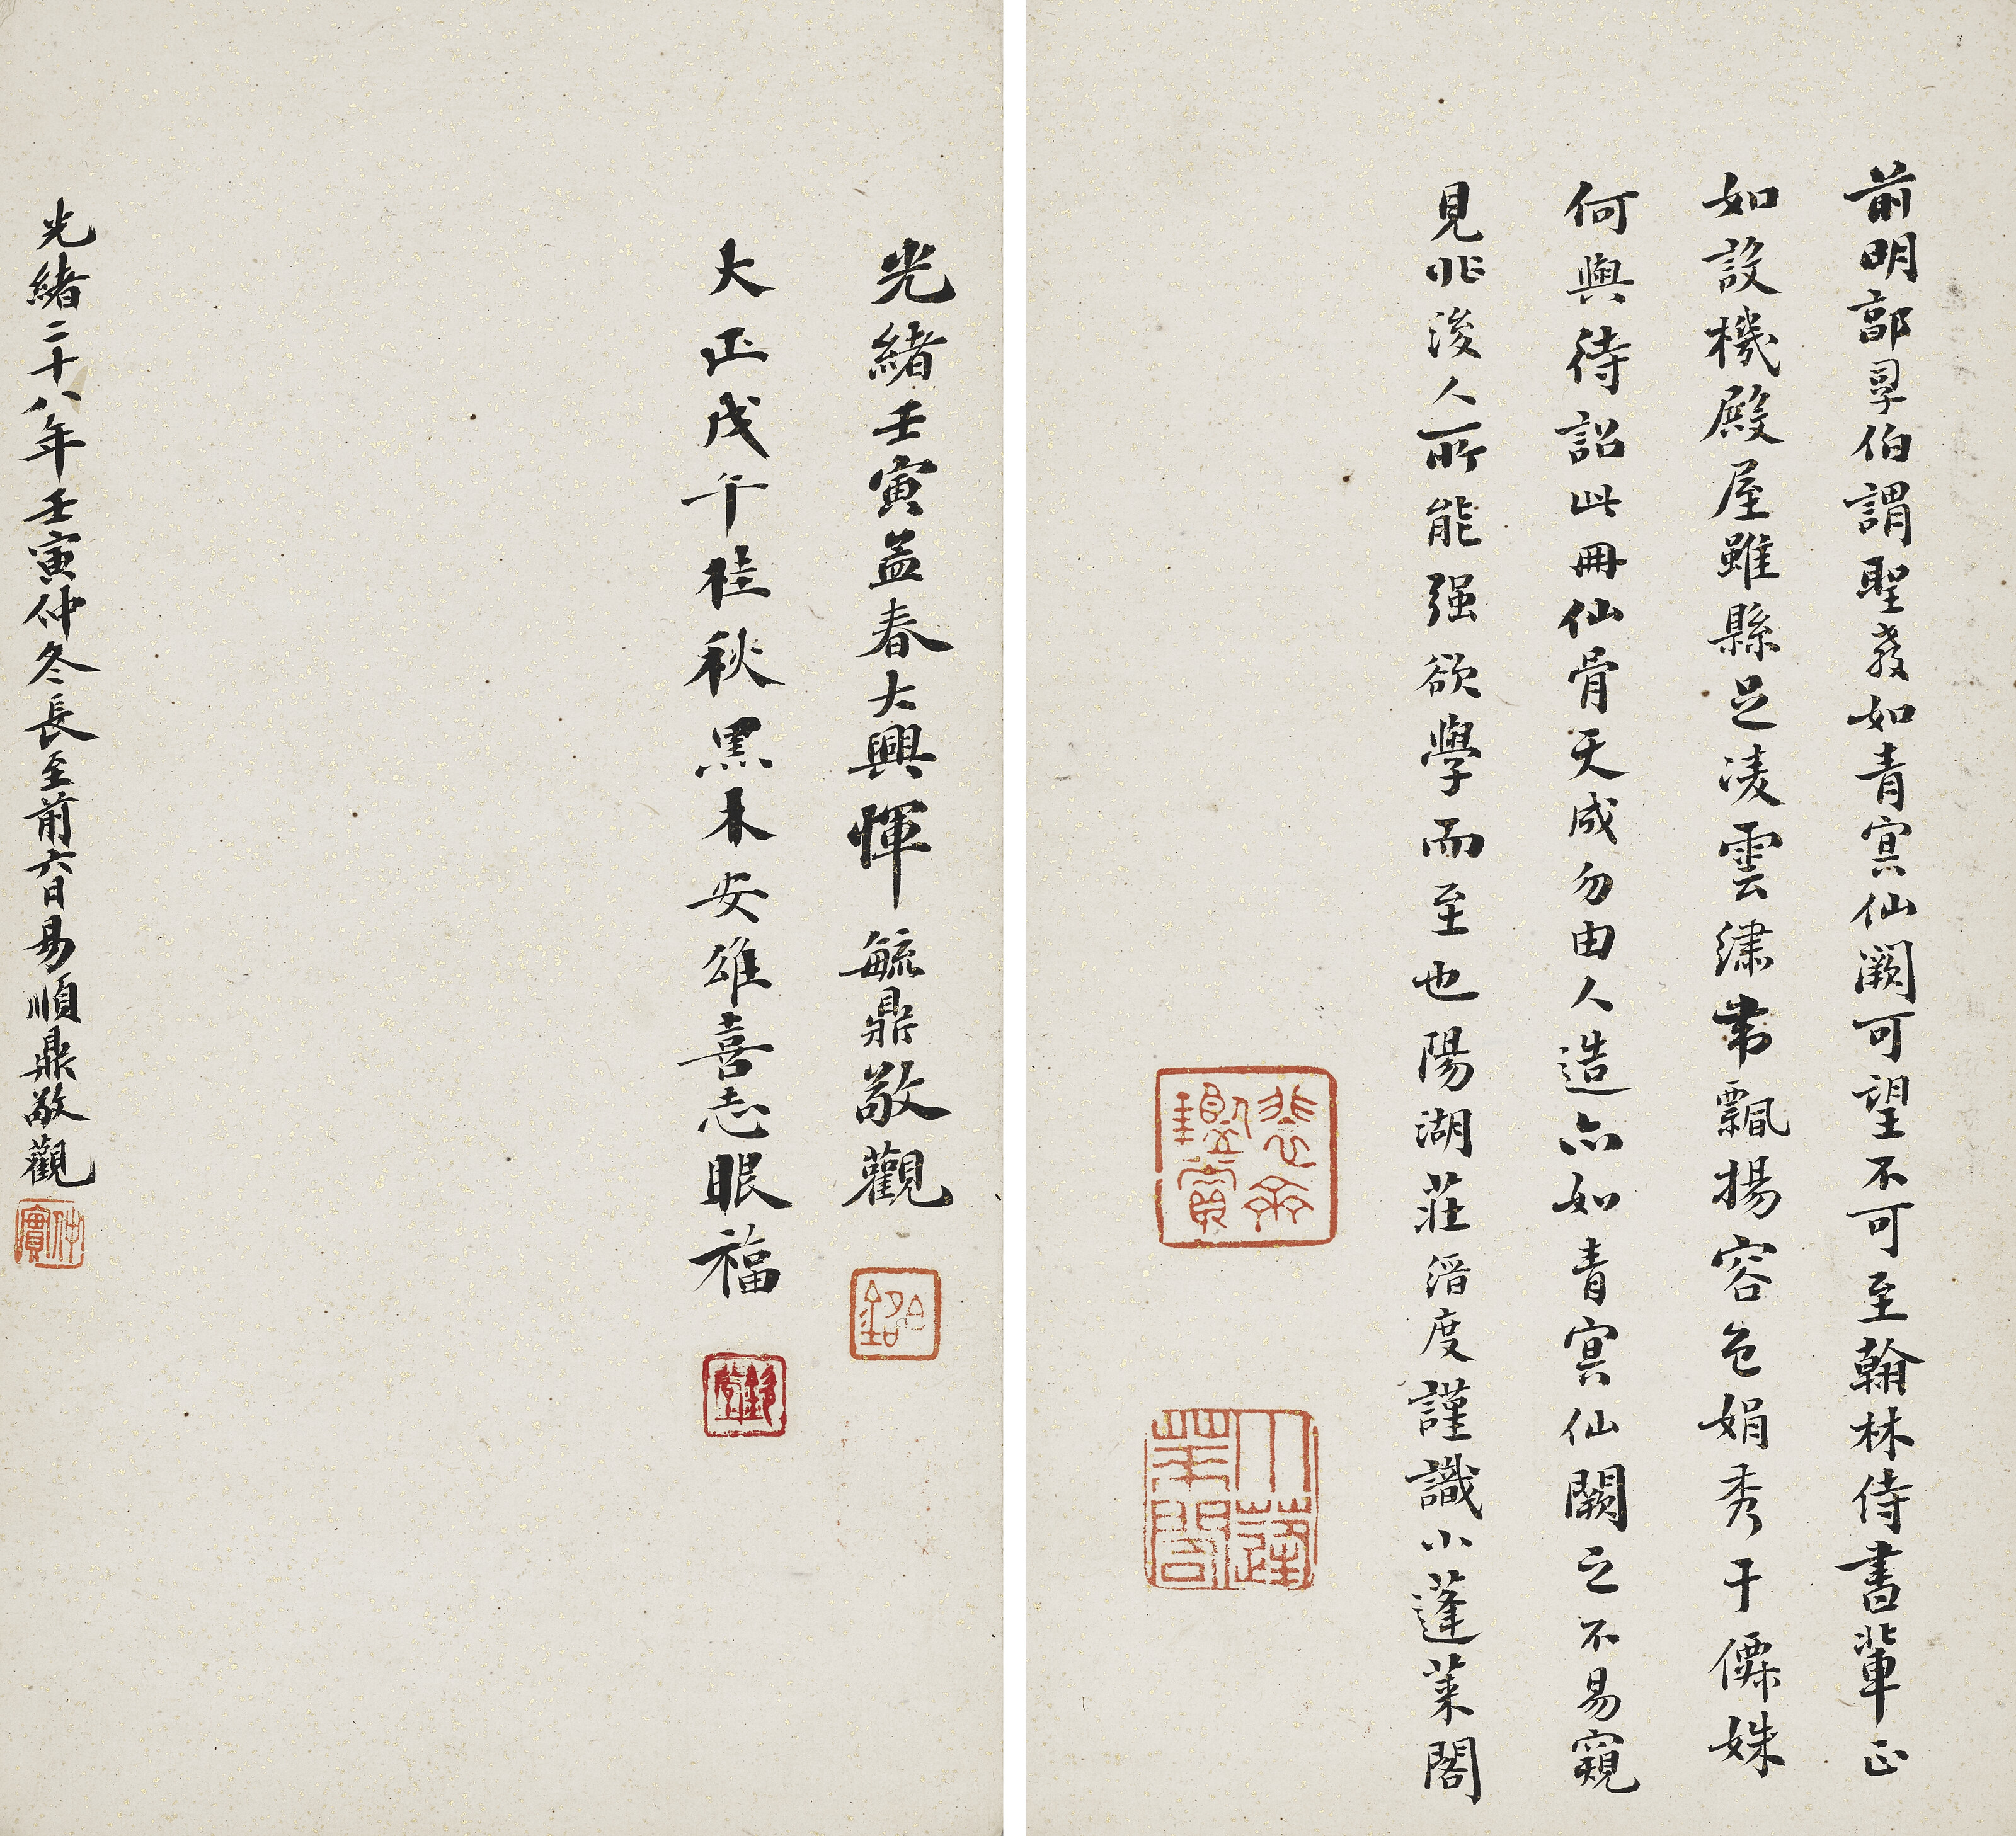 前明部㝛伯謂聖教如青寘仙闕可望不可至翰林侍書輩正
如設機殿屋雖縣足淩雲繡帶飄揚容色娟秀于僳姝
何與待詔此冊仙骨天成勿由人造亦如青寘仙闕之不易窺
見非後人所能强欲學而至也陽湖莊湣度謹識小蓬萊閣
裴景鑒賞
小蓬萊閣
光緒壬寅孟春大興惲毓鼎敬觀
大正戊午桂秋黑木安雄喜志眼福
光緒二十八年壬寅仲冬長至前六日易順鼎敬觀
仲實